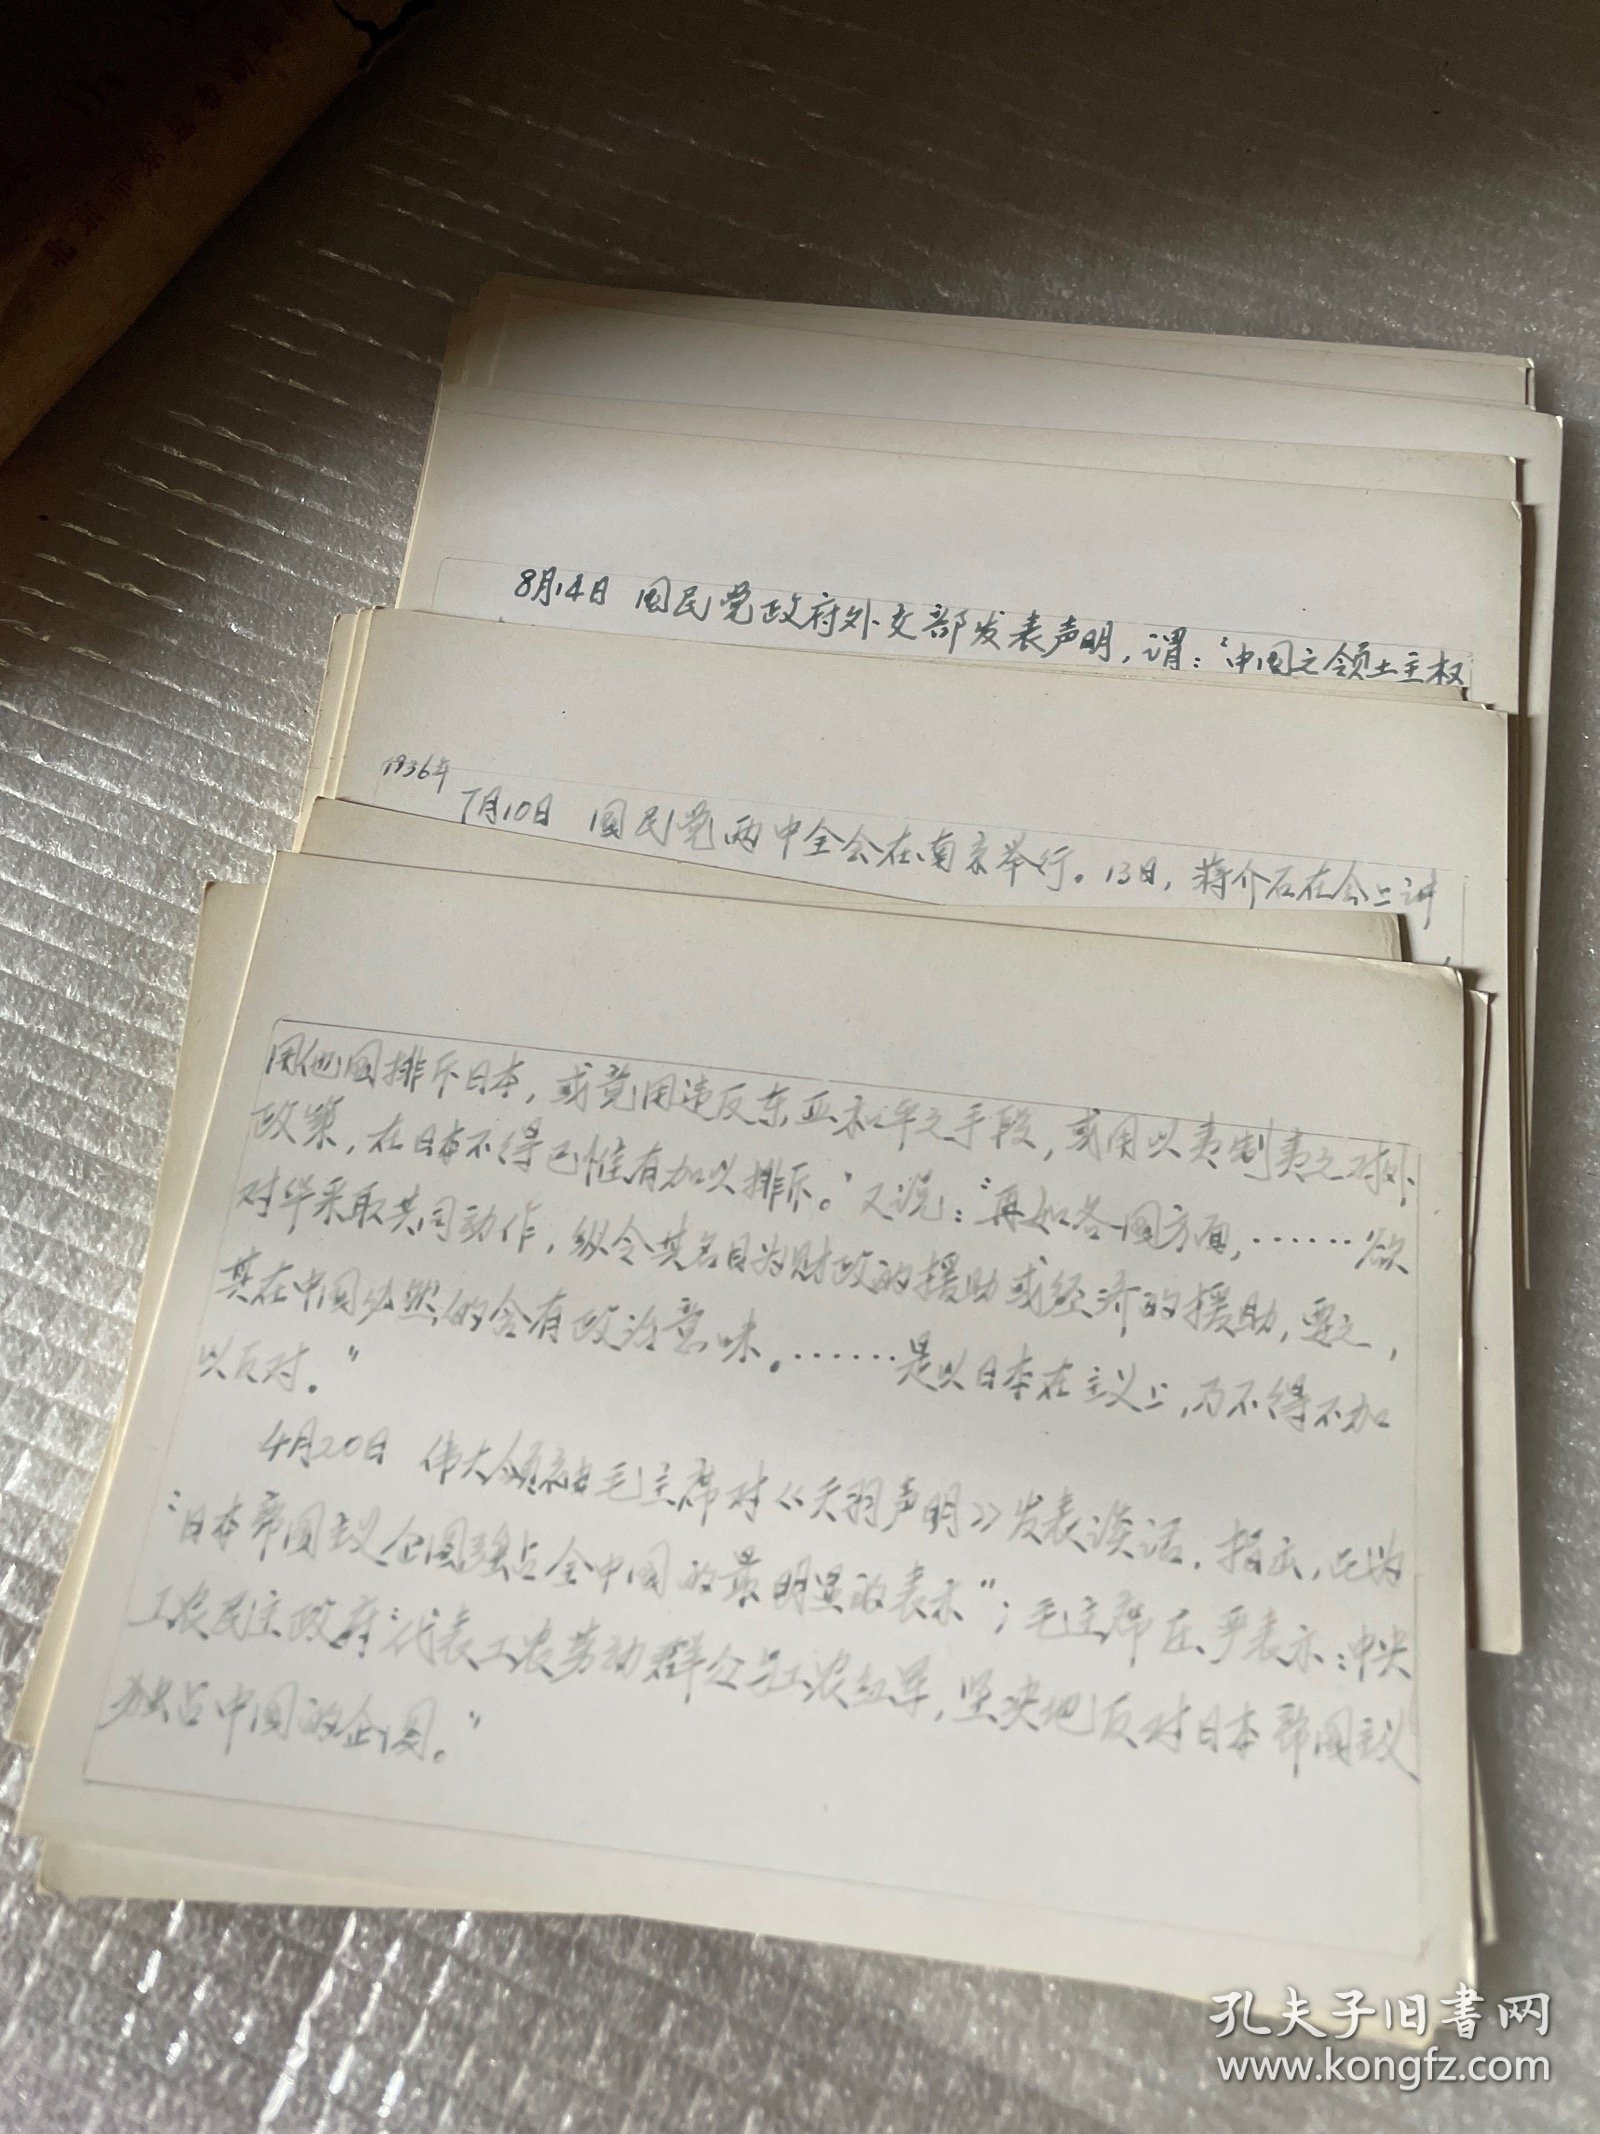 8月14日 国民党政府外交部发表声明，谓：“中国之领土主权
1936年
7月10日 国民党两中全会在南京举行。13日，蒋介石在会上讲
用他国排斥日本，或竟用违反东亚和平之手段，或用以夷制夷之对外
政策，在日本不得已惟有加以排斥。”又说：“再如各国方面，……欲
对华采取共同动作，纵令其名目为财政的援助或经济的援助，要之，
其在中国必然的含有政治意味。……是以日本在主义上，乃不得不加
以反对。”
4月20日 伟大领袖毛主席对《天羽声明》发表谈话，指出，此为
“日本帝国主义企图强占全中国的最明显的表示”；毛主席庄严表示：“中央
工农民主政府“代表工农劳动群众与工农红军，坚决地反对日本帝国主义
独占中国的企图。”
孔夫子旧书网
www.kongfz.com